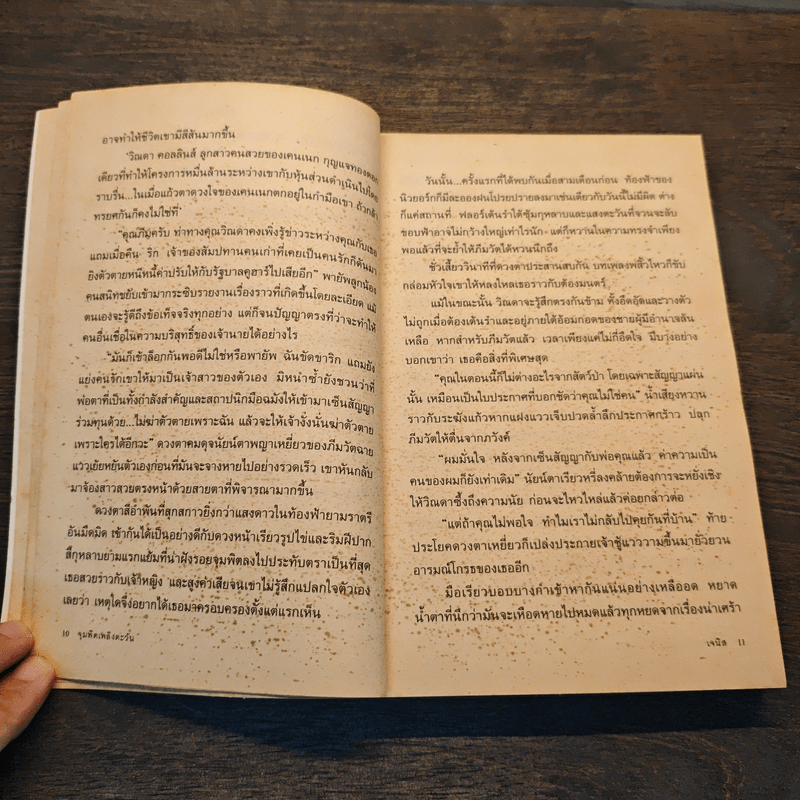 อาจทำให้ชีวิตเขามีสีสันมากขึ้น
'วิณดา คอลลินส์ ลูกสาวคนสวยของเคนเนก กุญแจทองดอก
เดียวที่ทำให้โครงการหมื่นล้านระหว่างเขากับหุ้นส่วนดำเนินไปโดย
ราบรื่น...ในเมื่อแก้วตาดวงใจของเคนเนกตกอยู่ในกำมือเขา ถ้ากล้า
ทรยศกันก็คงไม่ใช่ที่'
"คุณภีมครับ ท่าทางคุณวิณดาคงเพิ่งรู้ข่าวระหว่างคุณกับเธอ
แถมเมื่อคืน ริก เจ้าของสัมปทานคนเก่าที่เคยเป็นคนรักก็ดันมา
ยิงตัวตายหนีหนี้ค่าปรับให้กับรัฐบาลคูฮาร์ไปเสียอีก" พายัพลูกน้อง
คนสนิทขยับเข้ามากระซิบรายงานเรื่องราวที่เกิดขึ้นโดยละเอียด แม้
ตนเองจะรู้ดีถึงข้อเท็จจริงทุกอย่าง แต่ก็จนปัญญาตรงที่ว่าจะทำให้
คนอื่นเชื่อในความบริสุทธิ์ของเจ้านายได้อย่างไร
"มันก็เข้าล็อกกันพอดีไม่ใช่หรือพายัพ ฉันขัดขาริก แถมยัง
แย่งคนรักเขาให้มาเป็นเจ้าสาวของตัวเอง มิหนำซ้ำยังชวนว่าที่
พ่อตาที่เป็นทั้งกำลังสำคัญและสถาปนิกมือฉมังให้เข้ามาเซ็นสัญญา
ร่วมทุนด้วย...ไม่ฆ่าตัวตายเพราะฉัน แล้วจะให้เจ้างั่งนั่นฆ่าตัวตาย
เพราะใครได้อีกวะ" ดวงตาคมดุจนัยน์ตาพญาเหยี่ยวของภีมวัตฉาย
แววเย้ยหยันตัวเองก่อนที่มันจะจางหายไปอย่างรวดเร็ว เขาหันกลับ
มาจ้องสาวสวยตรงหน้าด้วยสายตาที่พิจารณามากขึ้น
ดวงตาสีอำพันที่สุกสกาวยิ่งกว่าแสงดาวในท้องฟ้ายามราตรี
อันมืดมิด เข้ากันได้เป็นอย่างดีกับดวงหน้าเรียวรูปไข่และริมฝีปาก
สีกุหลาบยามแรกแย้มที่น่าฝังรอยจุมพิตลงไปประทับตราเป็นที่สุด
เธอสวยราวกับเจ้าหญิง และสูงค่าเสียจนเขาไม่รู้สึกแปลกใจตัวเอง
เลยว่า เหตุใดจึงอยากได้เธอมาครอบครองตั้งแต่แรกเห็น
10 จุมพิตเพลิงตะวัน
วันนั้น...ครั้งแรกที่ได้พบกันเมื่อสามเดือนก่อน ท้องฟ้าของ
นิวยอร์กก็มีละอองฝนโปรยปรายลงมาเช่นเดียวกับวันนี้ไม่มีผิด ต่าง
ก็แค่สถานที่ ฟลอร์เต้นรำใต้ซุ้มกุหลาบและแสงตะวันที่จวนจะลับ
ขอบฟ้าอาจไม่กว้างใหญ่เท่าไรนัก แต่ก็หวานในความทรงจำเพียง
พอแล้วที่จะย้ำให้ภีมวัตได้หวนนึกถึง
ชั่วเสี้ยววินาทีที่ดวงตาประสานสบกัน บทเพลงพลิ้วไหวก็ขับ
กล่อมหัวใจเขาให้หลงใหลเธอราวกับต้องมนตร์
แม้ในขณะนั้น วิณดาจะรู้สึกตรงกันข้าม ทั้งอึดอัดและวางตัว
ไม่ถูกเมื่อต้องเต้นรำและอยู่ภายใต้อ้อมกอดของชายผู้มีอำนาจล้น
เหลือ หากสำหรับภีมวัตแล้ว เวลาเพียงแค่ไม่กี่อึดใจ มีบางอย่าง
บอกเขาว่า เธอคือสิ่งที่พิเศษสุด
"คุณในตอนนี้ก็ไม่ต่างอะไรจากสัตว์ป่า โดยเฉพาะสัญญาแผ่น
นั้น เหมือนเป็นใบประกาศที่บอกชัดว่าคุณไม่ใช่คน" น้ำเสียงหวาน
ราวกับระฆังแก้วหากแฝงแววเจ็บปวดล้ำลึกประกาศกร้าว ปลุก
ภีมวัตให้ตื่นจากภวังค์
"ผมมั่นใจ หลังจากเซ็นสัญญากับพ่อคุณแล้ว ค่าความเป็น
คนของผมก็ยังเท่าเดิม" นัยน์ตาเรียวหรี่ลงคล้ายต้องการจะหยั่งเชิง
ให้วิณดาซึ้งถึงความนัย ก่อนจะไหวไหล่แล้วค่อยกล่าวต่อ
"แต่ถ้าคุณไม่พอใจ ทำไมเราไม่กลับไปคุยกันที่บ้าน" ท้าย
ประโยคดวงตาเหยี่ยวก็เปล่งประกายเจ้าชู้แวววามขึ้นมายั่วยวน
อารมณ์โกรธของเธออีก
มือเรียวบอบบางกำเข้าหากันแน่นอย่างเหลืออด หยาด
น้ำตาที่นึกว่ามันจะเหือดหายไปหมดแล้วทุกหยดจากเรื่องน่าเศร้า
เจนิส 11